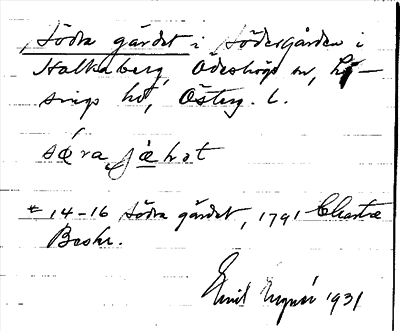 Södra gärdet i Södergården i
Stolkaberg, Ödeshögs sn, Ly-
sings hd, Österg. L.
sǿra jæḷrət
* 14-16 Södra gärdet, 1791 Charta
Beskr.
Emil 1931